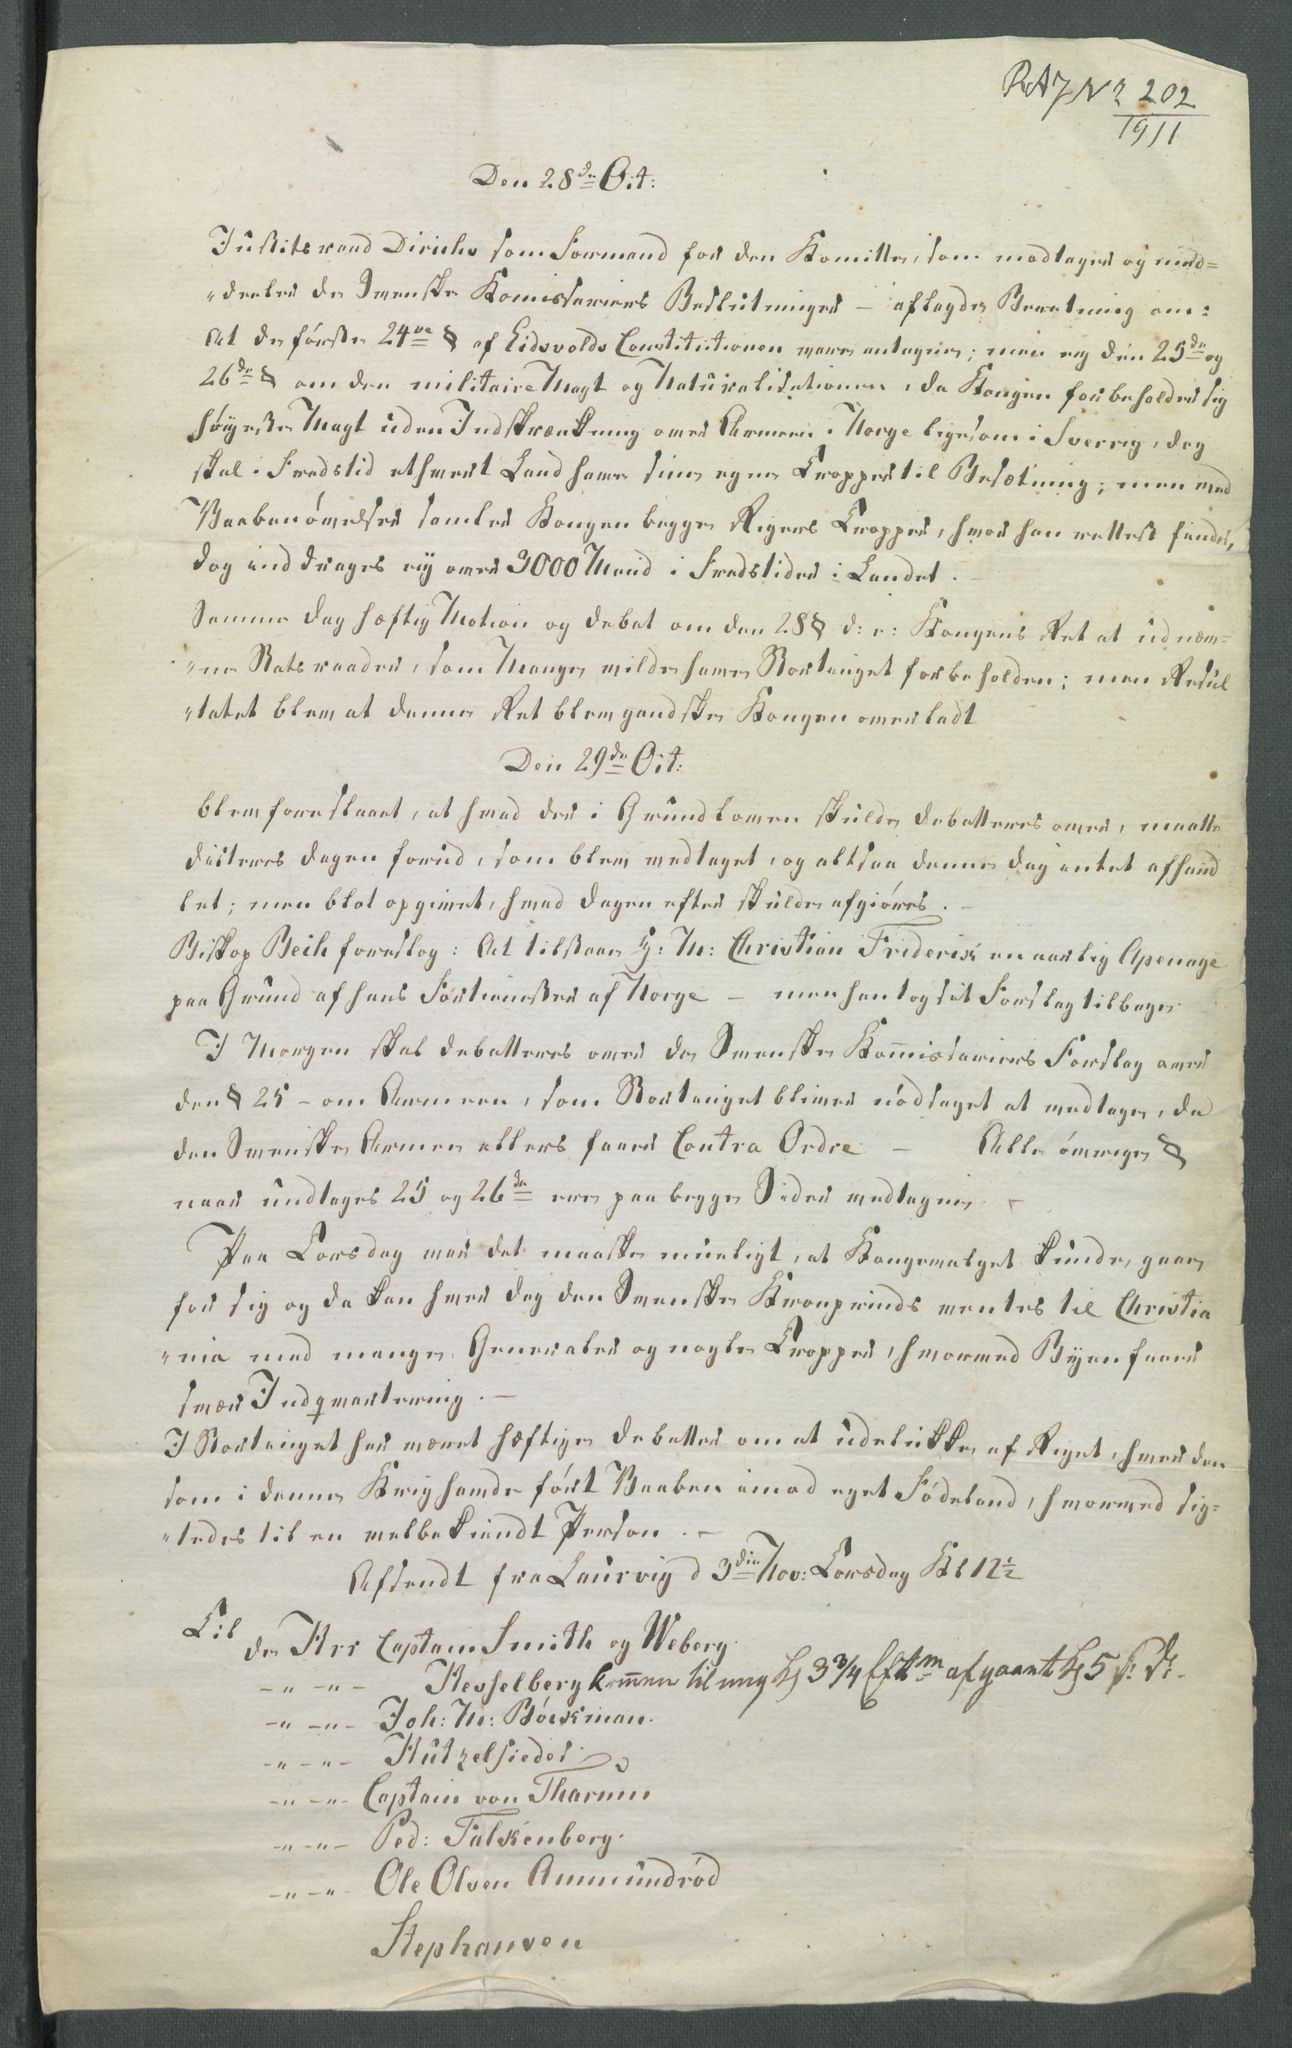 RAJ No 202
1911
Den 28de Oct:
Justitsraad Diriks som Formand for den Komitte, som modtager og med=
"deeler de Svenske Komissairers Beslutninger – aflagde Beretning om:
At de første 24ve § af Eidsvolds Constitutionen vare antagne; men ey den 25de og
26de § om den militaire Magt og Naturalisationen, da Kongen forbeholder sig
høyeste Magt uden Indskrænkning over Armeen i Norge ligesom i Sverrig, dog
skal i Fredstid ethvert Land have sine egne Tropper til Besætning; men ved
Vaabenøvelser samler Kongen begge Rigers Tropper, hvor han rettest finder,
dog inddrages ey over 3000 Mand i Fredstider i Landet.
Samme Dag hæftig Motion og Debat om den 28 § d: e: Kongens Ret at udnæv=
"ne Statsraader, som Mange vilde have Stortinget forbeholden; men Resul
"tatet blev at denne Ret blev gandske Kongen overladt
Den 29de Oct:
blev foreslaaet, at hvad der i Grundloven skulde debatteres over, maatte
dicteres Dagen forud, som blev vedtaget, og altsaa denne Dag intet afhand
let; men blot opgivet, hvad Dagen efter skulde afgiøres. –
Biskop Bech foreslog: At tilstaae H: M: Christian Friderik en aarlig Apenage
paa Grund af hans Fortienester af Norge – men han tog sit Forslag tilbage
I Morgen skal debatteres over de Svenske Kommissairers Forslag over
den § 25 – om Armeen, som Stortinget bliver nødsaget at vedtage, da
den Svenske Armee ellers faaer Contra Ordre – Alle øvrige §
naar undtages 25 og 26de ere paa begge Sider vedtagne. –
Paa Torsdag var det maaske mueligt, at Kongevalget kunde gaae
for sig og da kan hver Dag den Svenske Kronprinds ventes til Christia
"nia med mange Generaler og nogle Tropper, hvormed Byen faaer
svær Indqvartering. –
I Stortinget har været hæftige Debatter om at udelukke af Riget, hver den
som i denne Krig havde ført Vaaben imod eget Fødeland, hvormed sig=
"tedes til en velbekiendt Person. –
Afsendt fra Laurvig d 3die Nov: Torsdag Kl 12½
Til
de Hrr Captain Smith og Weberg.
–"– –"– Hesselberg kommen til mig Kl 3¾ Eftm afgaaet Kl 5
–"– –"– Joh: M: Böckman.
–"– –"– Kutzelsieder.
–"– –"– Captain von Tharun
–"– –"– Ped: Falkenberg.
–"– –"– Ole Olsen Ammundrød
Stephansen